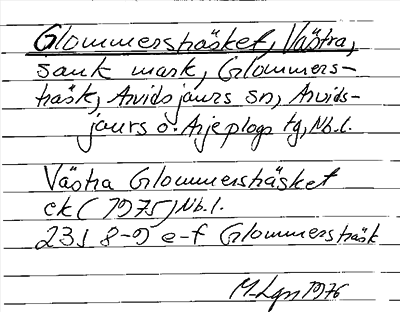 Glommersträsket, Västra,
sank mark, Glommers-
träsk, Arvidsjaurs sn, Arvids-
jaurs o. Arjeplogs tg, Nb.l.
Västra Glommersträsket
ek (1975) Nb.l.
23J 8-9 e-f Glommersträsk
M Lgn 1976